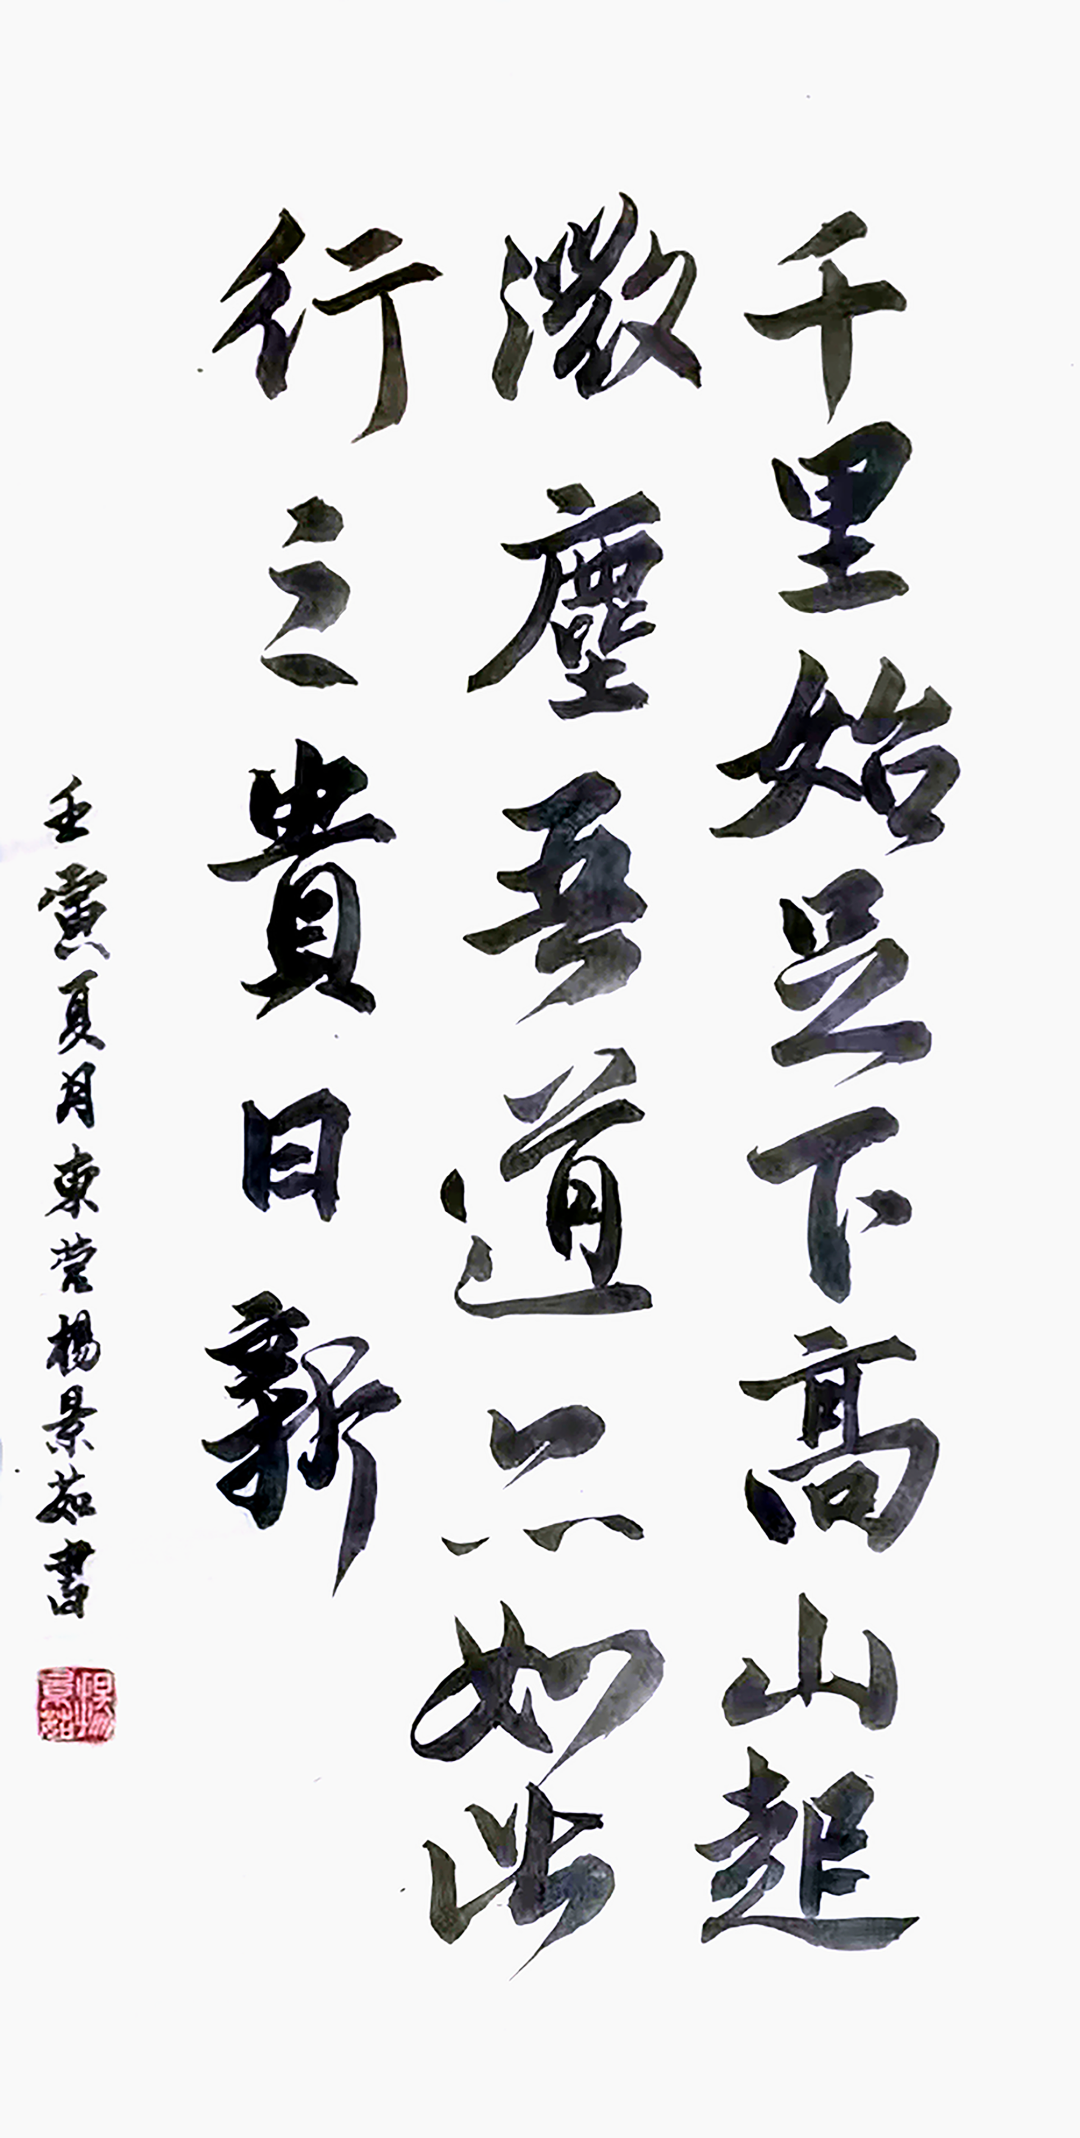 千里始足下高山起
微塵吾道亦如此
行之貴日新
壬寅夏月東莞楊景茹書
楊景茹